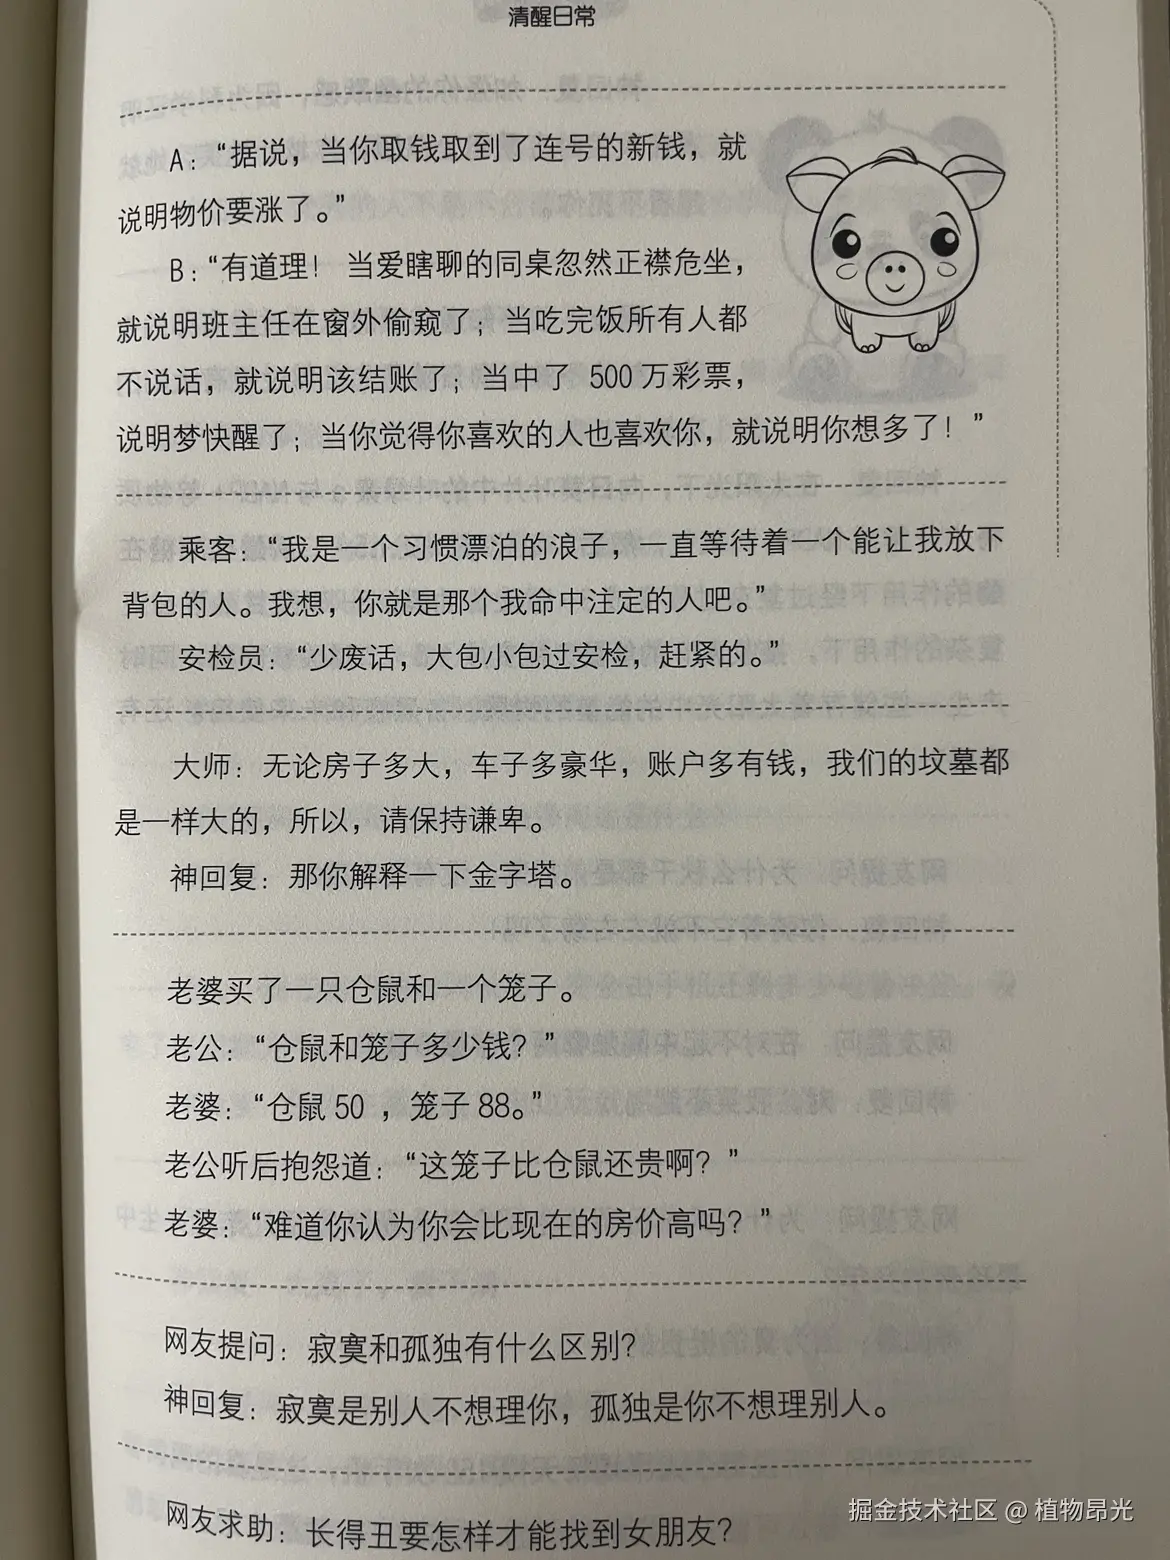 清醒日常
A：“据说，当你取钱取到了连号的新钱，就
说明物价要涨了。”
B：“有道理！当爱瞎聊的同桌忽然正襟危坐，
就说明班主任在窗外偷窥了；当吃完饭所有人都
不说话，就说明该结账了；当中了 500 万彩票，
说明梦快醒了；当你觉得你喜欢的人也喜欢你，就说明你想多了！”
乘客：“我是一个习惯漂泊的浪子，一直等待着一个能让我放下
背包的人。我想，你就是那个我命中注定的人吧。”
安检员：“少废话，大包小包过安检，赶紧的。”
大师：无论房子多大，车子多豪华，账户多有钱，我们的坟墓都
是一样大的，所以，请保持谦卑。
神回复：那你解释一下金字塔。
老婆买了一只仓鼠和一个笼子。
老公：“仓鼠和笼子多少钱？”
老婆：“仓鼠 50 ，笼子 88。”
老公听后抱怨道：“这笼子比仓鼠还贵啊？”
老婆：“难道你认为你会比现在的房价高吗？”
网友提问：寂寞和孤独有什么区别？
神回复：寂寞是别人不想理你，孤独是你不想理别人。
网友求助：长得丑要怎样才能找到女朋友？
掘金技术社区 @ 植物昂光